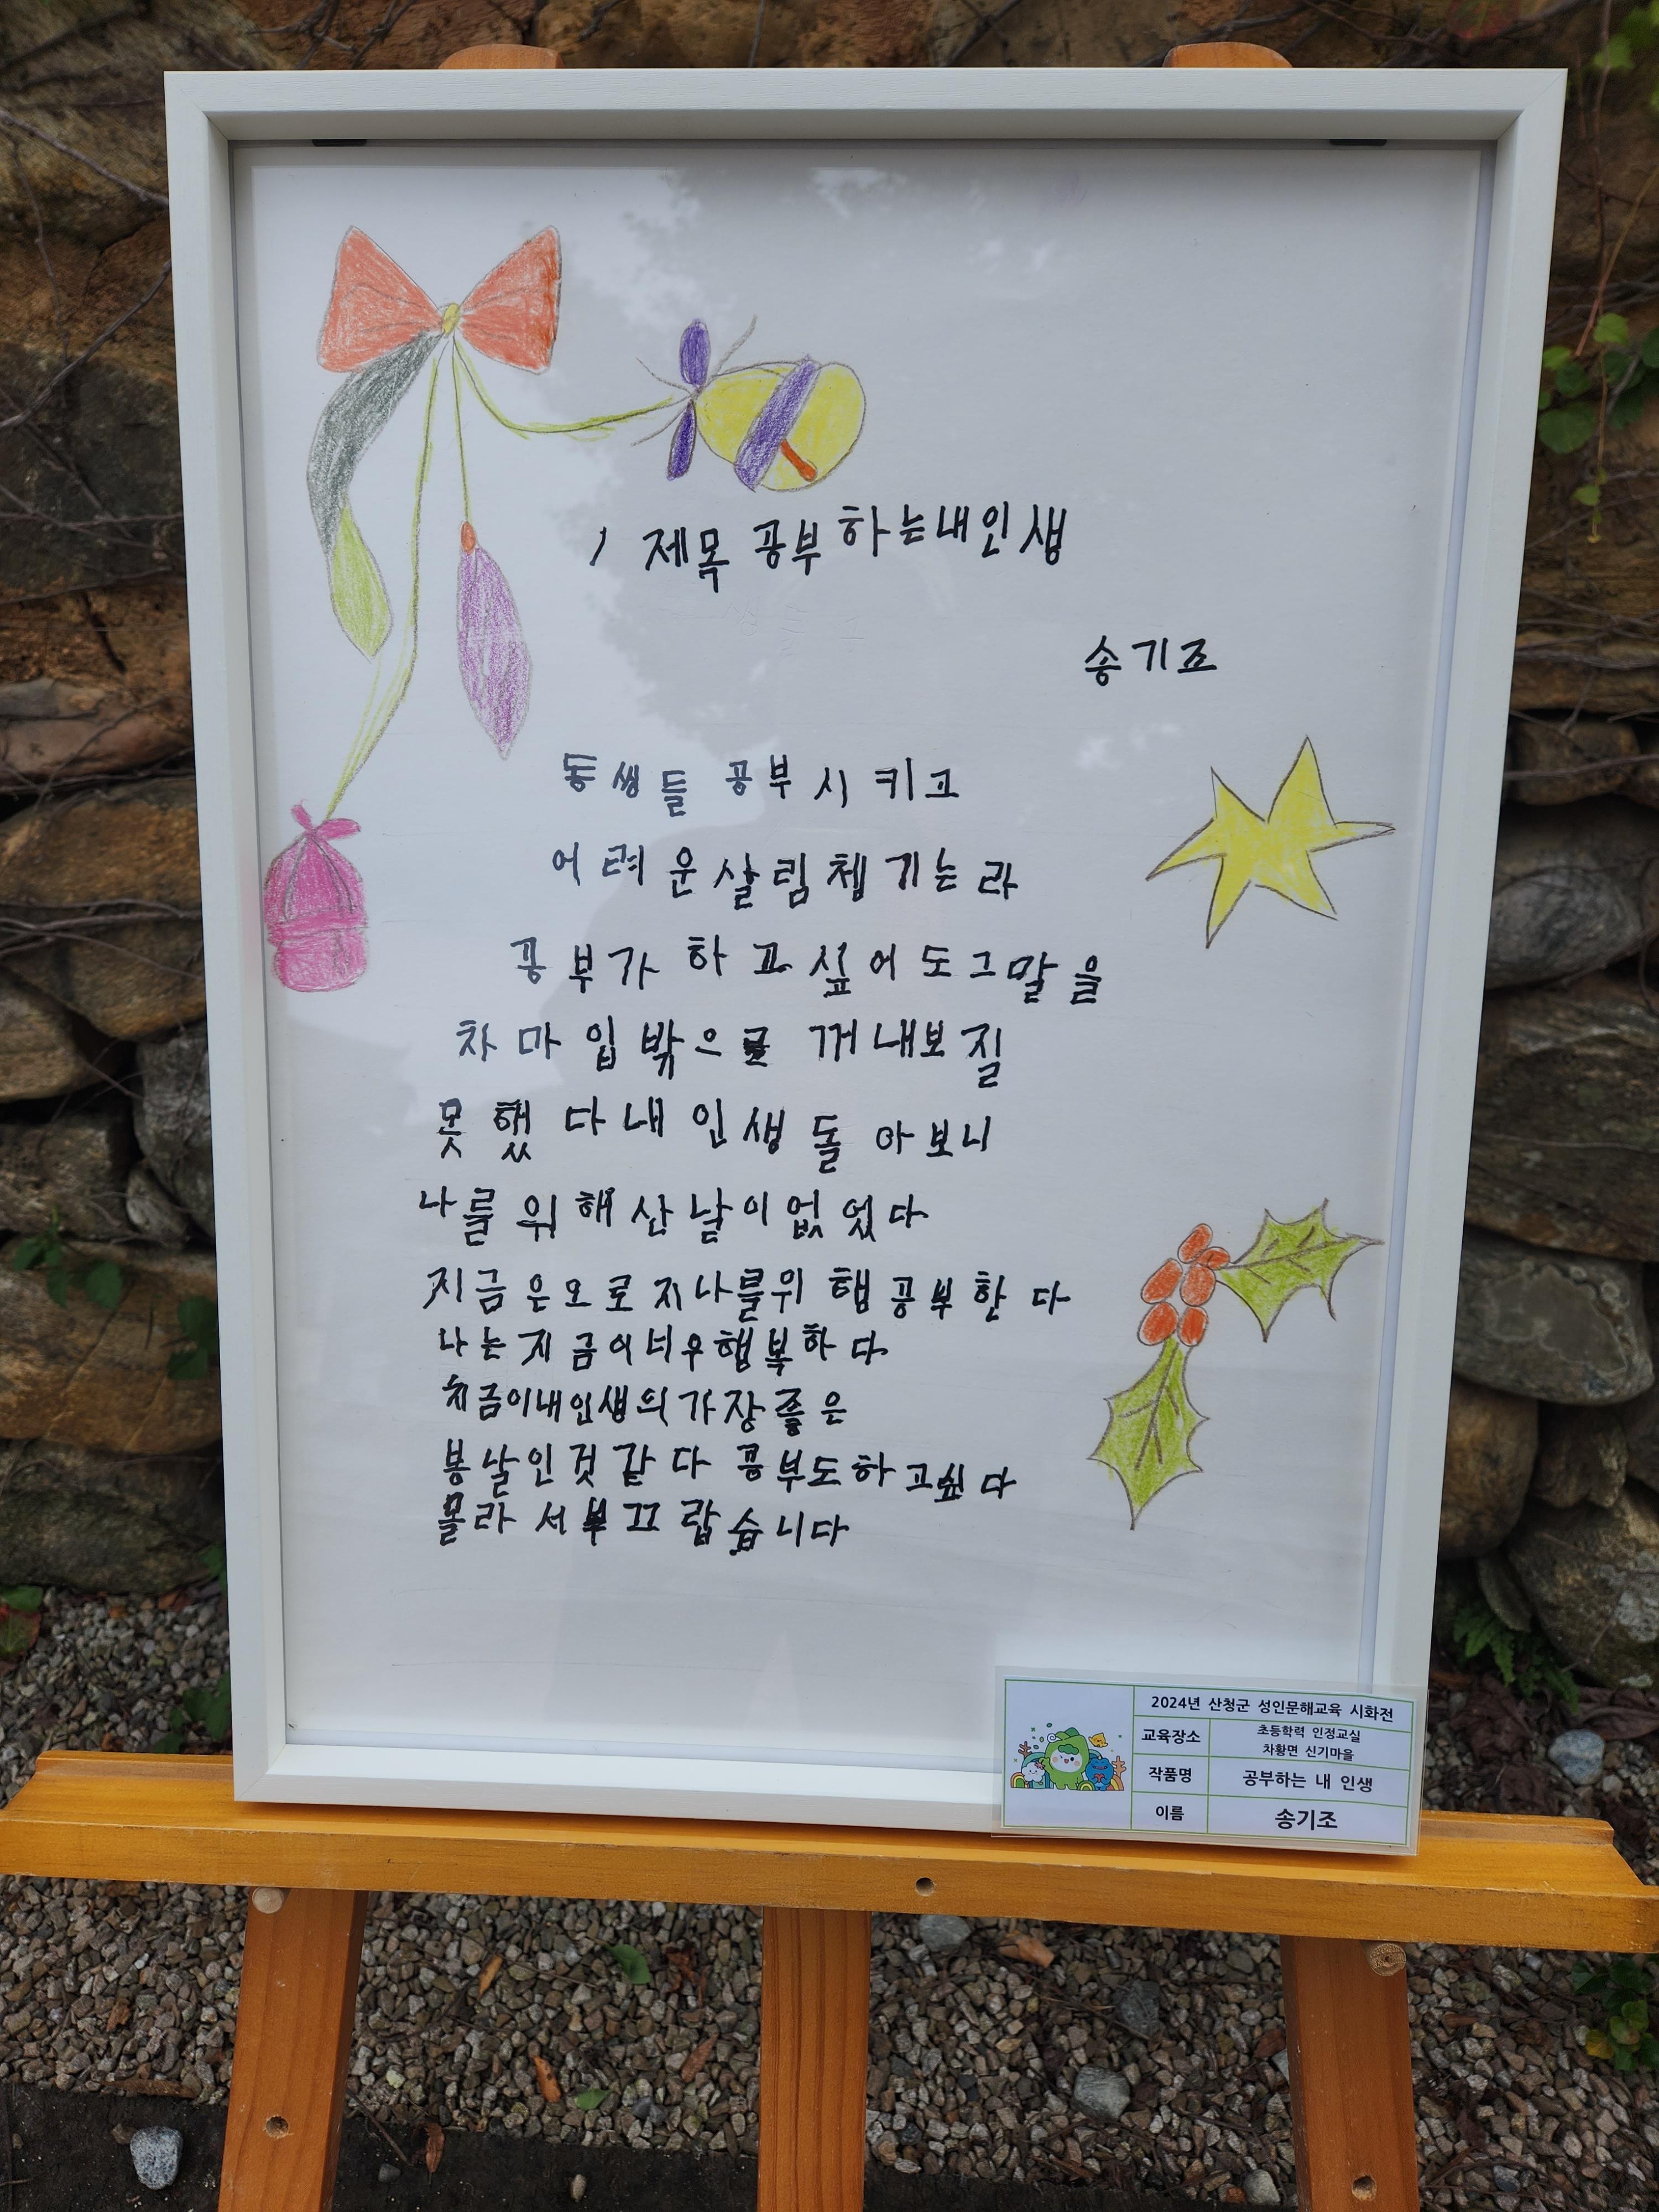 1 제목 공부하는내인생
송기조
동생들 공부시키고
어려운살림챙기는라
공부가 하고싶어도그말을
차마입밖으로 꺼내보질
못했다내인생돌아보니
나를위해산날이없었다
지금은오로지나를위해공부한다
나는지금이너무행복하다
지금이내인생의가장좋은
봄날인것같다 공부도하고싶다
몰라서부끄럽습니다
2024년 산청군 성인문해교육 시화전
교육장소 초등학력 인정교실
차황면 신기마을
작품명 공부하는 내 인생
이름 송기조